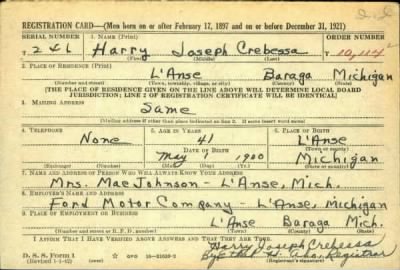 REGISTRATION CARD—(Men born on or after February 17, 1897 and on or before December 31, 1921)
SERIAL NUMBER 1. NAME (Print) ORDER NUMBER
T 241 Harry Joseph Crebessa T 10,114
(First) (Middle) (Last)
2. PLACE OF RESIDENCE (Print)
L'Anse Baraga Michigan
(Number and street) (Town, township, village, or city) (County) (State)
[THE PLACE OF RESIDENCE GIVEN ON THE LINE ABOVE WILL DETERMINE LOCAL BOARD
JURISDICTION; LINE 2 OF REGISTRATION CERTIFICATE WILL BE IDENTICAL]
3. MAILING ADDRESS
Same
(Mailing address if other than place indicated on line 2. If same insert word same)
4. TELEPHONE 5. AGE IN YEARS 6. PLACE OF BIRTH
None 41 L'Anse
DATE OF BIRTH (Town or county)
May 1 1900 Michigan
(Exchange) (Number) (Mo.) (Day) (Yr.) (State or country)
7. NAME AND ADDRESS OF PERSON WHO WILL ALWAYS KNOW YOUR ADDRESS
Mrs. Mae Johnson - L'Anse, Mich.
8. EMPLOYER'S NAME AND ADDRESS
Ford Motor Company - L'Anse, Mich.
9. PLACE OF EMPLOYMENT OR BUSINESS
L'Anse Baraga Mich.
(Number and street or R. F. D. number) (Town) (County) (State)
I AFFIRM THAT I HAVE VERIFIED ABOVE ANSWERS AND THAT THEY ARE TRUE.
Harry Joseph Crebessa
D. S. S. Form 1 GPO 16—21630-2 By Registrar
(Revised 1-1-42)